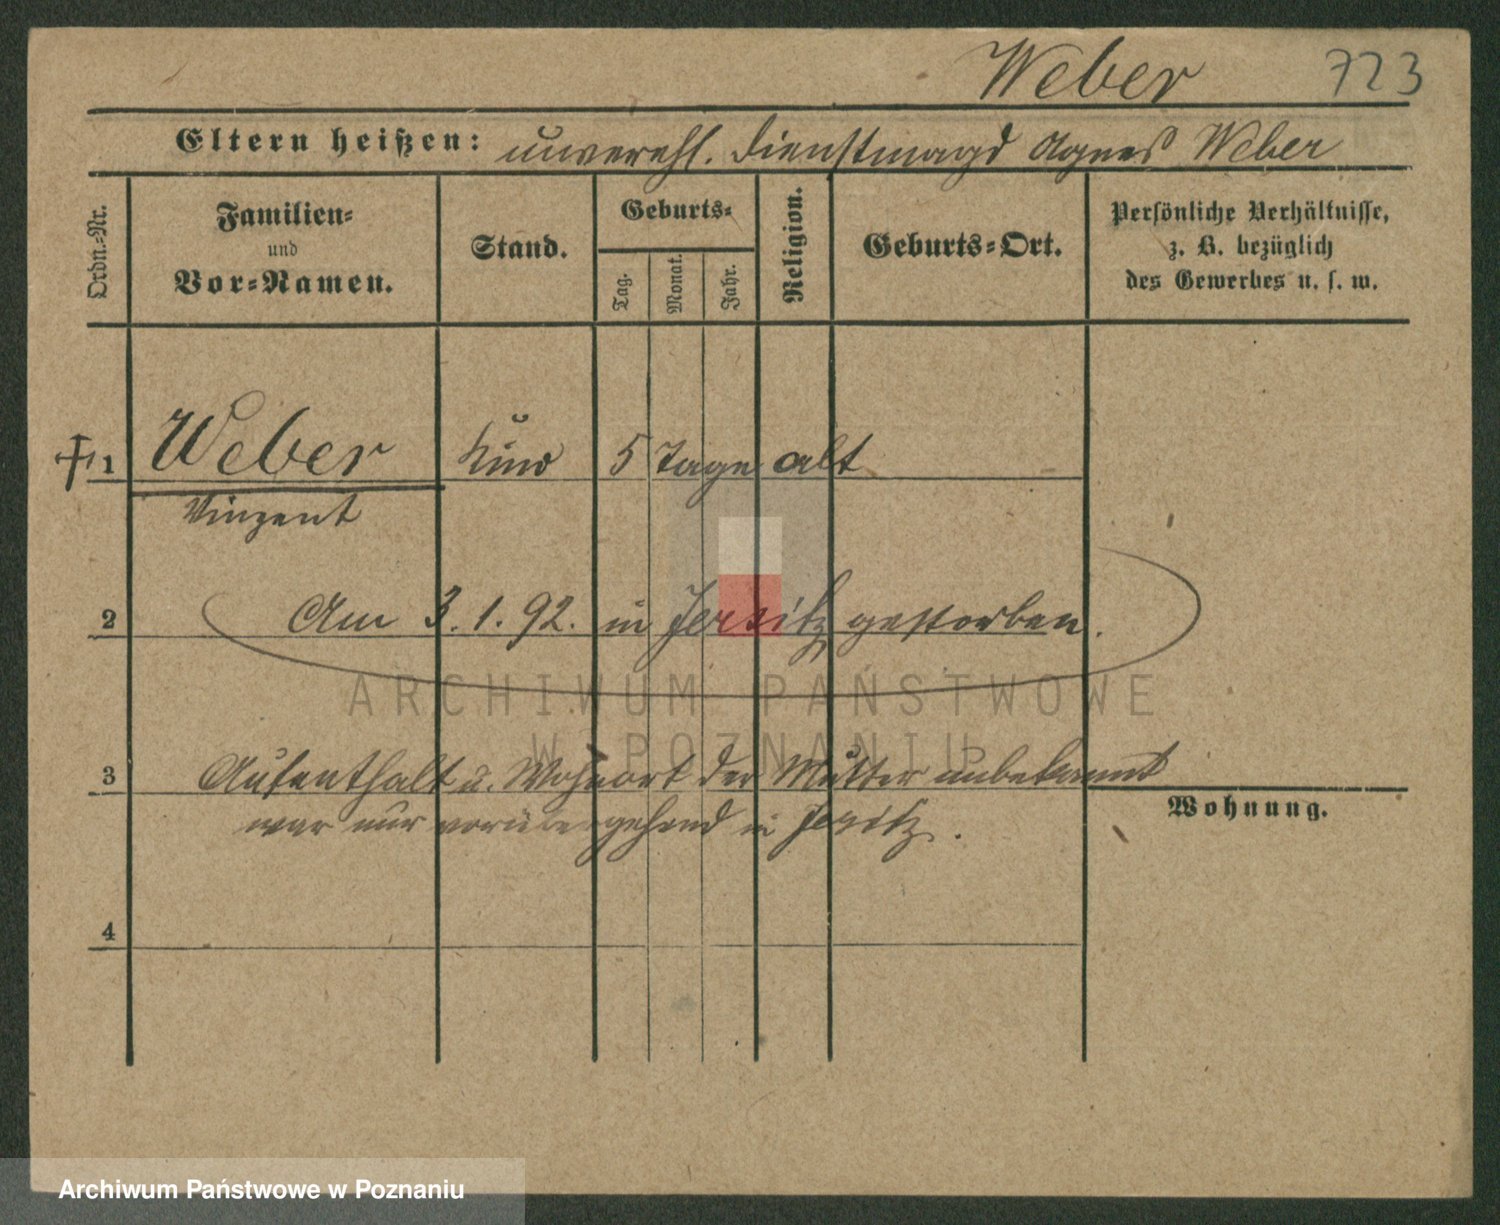 Weber 723
Eltern heißen: unverehl. Dienstmagd Agnes Weber
Ordn.-Nr.
Familien-
und
Vor-Namen.
Stand.
Geburts-
Tag.
Monat.
Jahr.
Religion.
Geburts-Ort.
Persönliche Verhältnisse,
z. B. bezüglich
des Gewerbes u. s. w.
† 1 Weber Kind 5 Tage alt
Vinzent
2 Am 3.1.92. in Jersitz gestorben.
ARCHIWUM PAŃSTWOWE
W POZNANIU
3 Aufenthalt u. Wohnort der Mutter unbekannt
Wohnung.
war nur vorübergehend in Jersitz.
4
Archiwum Państwowe w Poznaniu